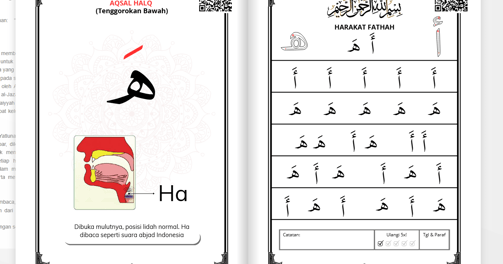 AQSAL HALQ
(Tenggorokan Bawah)
هَ
Ha
Dibuka mulutnya, posisi lidah normal. Ha
dibaca seperti suara abjad Indonesia
بِسْمِ اللهِ الرَّحْمٰنِ الرَّحِيْمِ
HARAKAT FATHAH
أَ هَ
أَ أَ أَ أَ أَ
هَ هَ هَ هَ هَ
أَ أَ هَ أَ هَ هَ
أَ هَ أَ هَ أَ هَ
هَ أَ هَ أَ هَ أَ
Catatan: Ulangi 5x! Tgl & Paraf